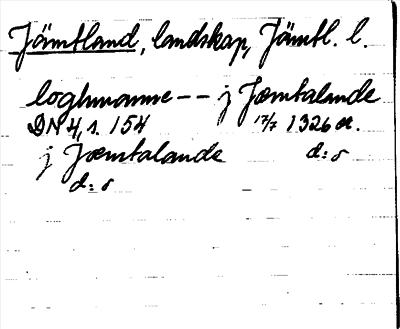 Jämtland, landskap, Jämtl. l.
loghmanne -- j Jæmtalande
DN 4, s. 154 17/7 1326 or.
j Jæmtalande d:o
d:o